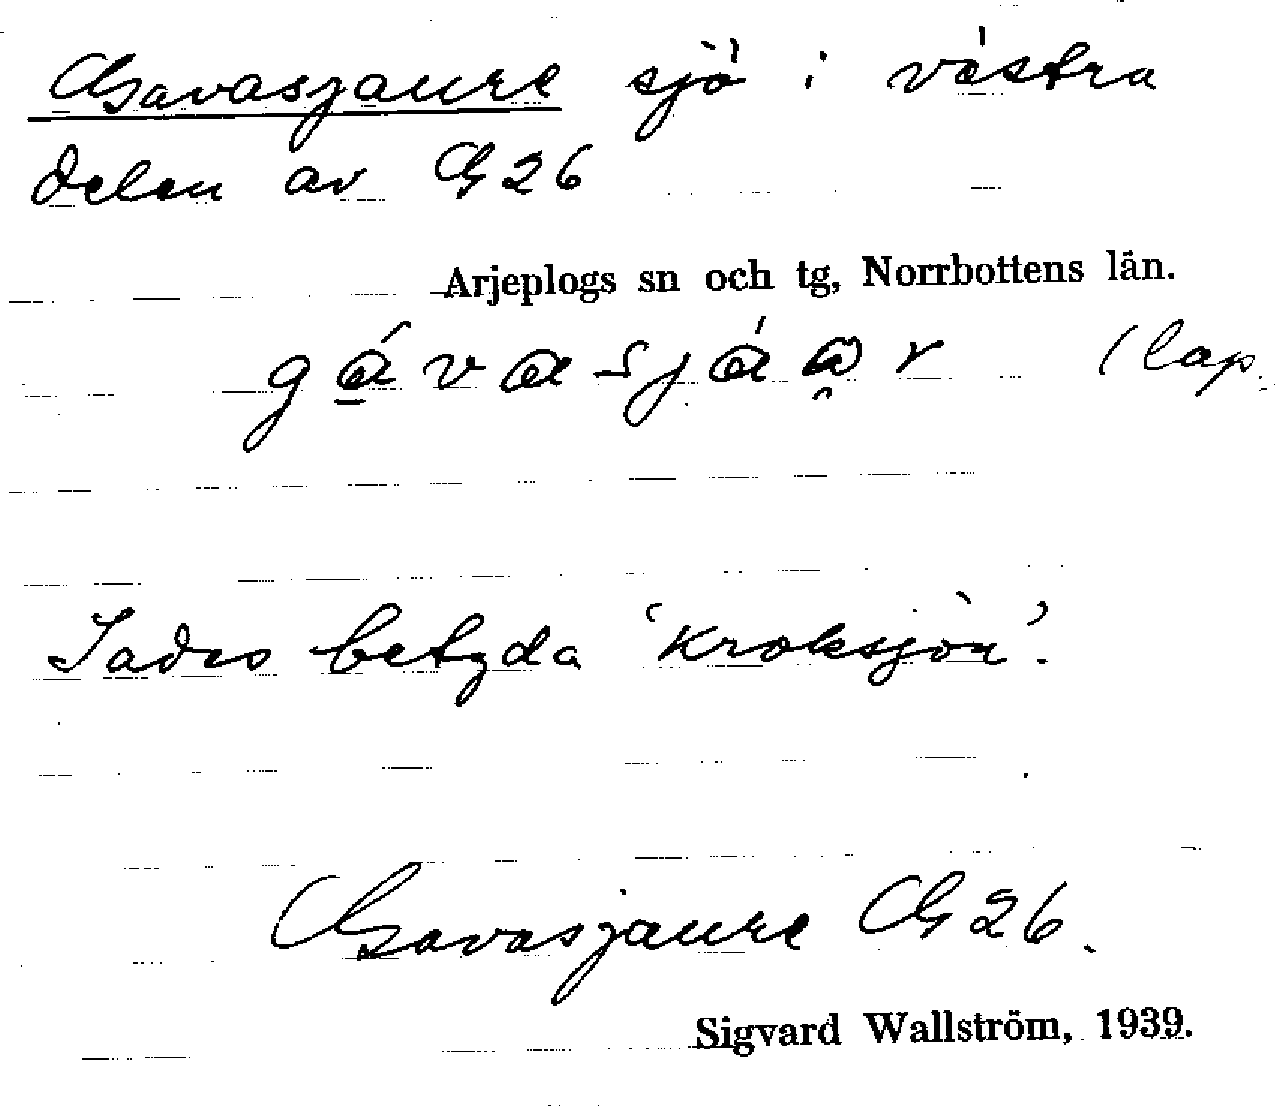 Gavasjaure sjö i västra
delen av G 26
Arjeplogs sn och tg, Norrbottens län.
(lap.
Sades betyda 'kroksjön'.
Gavasjaure G 26.
Sigvard Wallström, 1939.